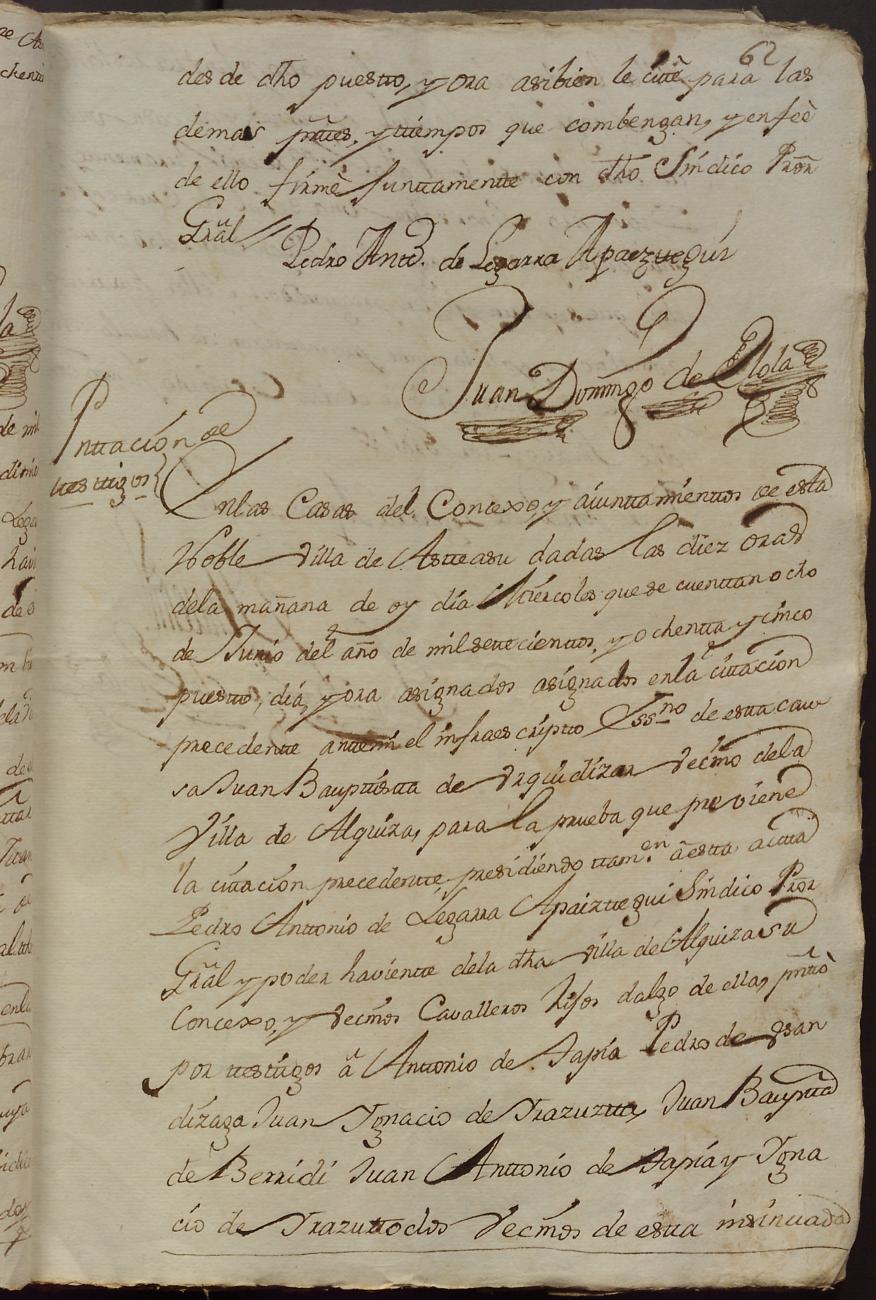 62
des de dho puestto, y ora asibien le cité para las
demas prttes, y ttiempos que combengan, y enfeè
de ello firmè Junttamentte con dho Síndico Prõr
Grãl //
Pedro Antt.º de Legarra Apaezttegui
Juan Domingo de Elola
Pnttacíon de
ttesttigos
En las Casas del Concexo, y aiunttamienttos de estta
Noble Villa de Astteasu dadas las diez oras
dela mañana de oy día Miércoles que se cuenttan ocho
de Junio del año de mil settecienttos, y ochentta y cinco
puestto, día, y ora asignados asignados en la cittacion
precedentte anttemi el infraescriptto Essno de estta cau
sa Juan Bauptistta de Urquidizar vecino dela
Villa de Alquiza, para la prueba que previene
la cittacíon precedentte, presidiendo ttamⁿ aestta actta
Pedro Anttonio de Legarra Apaizttegui Síndico Prõr
Grãl y poder havientte dela dha Villa de Alquiza su
Concexo, y vecinos Cavalleros hijos dalgo de ella, prnttò
por ttesttigos à Anttonio de Tapia Pedro de Gsan
dizaga Juan Ygnacio de Yrazuztta, Juan Bauptta
de Berridi Juan Anttonio de Tapia y Ygna
cio de Yrazuztta todos vecinos de estta insinuada